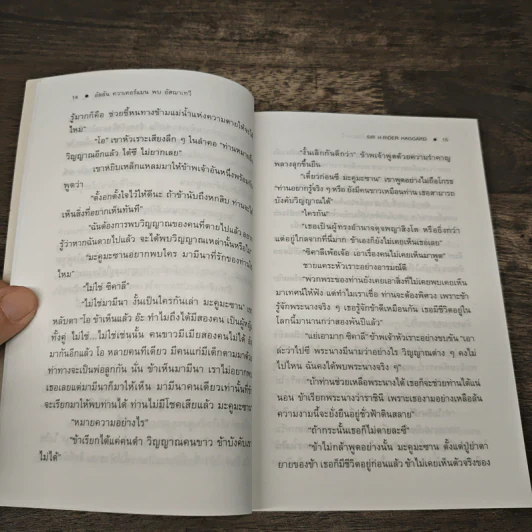 14 ● อัลลัน ควาเตอร์แมน พบ อัสชาเทวี
รู้มากก็คือ ช่วยชี้หนทางข้ามแม่น้ำแห่งความตายให้
ใหม่"
"โอ" เขาหัวเราะเสียงดึก ๆ ในลำคอ "ท่านหมายถึง
วิญญาณอีกแล้ว ได้ซี ไม่ยากเลย"
เขาหยิบเหล็กแหลมมาให้ข้าพเจ้าอันหนึ่งพร้อม
พูดว่า
"ตั้งอกตั้งใจไว้ให้ดีนะ ถ้าข้านับถึงหกสิบ ท่านจะ
เห็นสิ่งที่อยากเห็นทันที"
"ฉันต้องการพบวิญญาณของคนที่ตายไปแล้ว
รู้ว่าหากฉันตายไปแล้ว จะได้พบวิญญาณเหล่านั้นหรือ
"มะคูมะซานอยากพบใคร มามีนาที่รักของท่าน
ไหม"
"ไม่ใช่ ซิคาลี"
"ไม่ใช่มามีนา งั้นเป็นใครกันเล่า มะคูมะซาน"
หลับตา "โอ ข้าเห็นแล้ว อ๊ะ ทำไมถึงได้มีสองคน เป็นผู้หญิง
ทั้งคู่ ไม่ใช่...ไม่ใช่เช่นนั้น คนขาวมีเมียสองคนไม่ได้
มากันอีกแล้ว โอ หลายคนทีเดียว มีคนแก่มีเด็กตามมาด้วย
ท่าทางจะเป็นพ่อลูกกัน นั่น ข้าเห็นมามีนา เราไม่อยาก
เธอเลยแต่มามีนาก็มาให้เห็น มามีนาคนเดียวเท่านั้นที่
จะเรียกมาให้พบท่านได้ ท่านไม่มีโชคเสียแล้ว มะคูมะซาน"
"หมายความอย่างไร"
"ข้าเรียกได้แค่คนดำ วิญญาณคนขาว ข้าบังคับ
ไม่ได้"
SIR H.RIDER HAGGARD ● 15
"งั้นเลิกกันดีกว่า" ข้าพเจ้าพูดด้วยความรำคาญ
พลางลุกขึ้นยืน
"เดี๋ยวก่อนซี มะคูมะซาน" เขาพูดอย่างไม่ถือโกรธ
"ท่านอยากรู้จริง ๆ หรือ ยังมีคนขาวเหมือนท่าน เธอสามารถ
บังคับวิญญาณได้"
"ใครกัน"
"เธอเป็นผู้ทรงอำนาจดุจพญาสิงโต หรือยิ่งกว่า
แต่อยู่ไกลจากที่นี่มาก ข้าเองก็ยังไม่เคยเห็นเธอเลย"
"ซิคาลีเพ้อเจ้อ เอาเรื่องคนไม่เคยเห็นมาพูด"
ชายแคระหัวเราะอย่างอารมณ์ดี
"พ่อพระของท่านยังเคยเอาสิ่งที่ไม่เคยพบเคยเห็น
มาเทศน์ให้ฟัง แต่ทำไมเราเชื่อ ท่านจะต้องพิศวง เพราะข้า
รู้จักพระนางจริง ๆ เธอรู้จักข้าดีเหมือนกัน เธอมีชีวิตอยู่ใน
โลกนี้มานานกว่าสองพันปีแล้ว"
"แย่เอามาก ซิคาลี" ข้าพเจ้าหัวเราะอย่างขบขัน "เอา
ล่ะว่าไปซี พระนางมีนามว่าอย่างไร วิญญาณต่าง ๆ คงไม่
ไปไหน ฉันคงได้พบพระนางจริง ๆ"
"ถ้าท่านช่วยเหลือพระนางได้ เธอก็จะช่วยท่านได้แน่
นอน ข้าเรียกพระนางว่าราชินี เพราะเธองามอย่างเหลือล้น
ความงามนี้จะยั่งยืนอยู่ชั่วฟ้าดินสลาย"
"ถ้ากระนั้นเธอก็ไม่ตายละซี"
"ข้าไม่กล้าพูดอย่างนั้น มะคูมะซาน ตั้งแต่ปู่ย่าตา
ยายของข้า เธอก็มีชีวิตอยู่ก่อนแล้ว ข้าไม่เคยเห็นตัวจริงของ